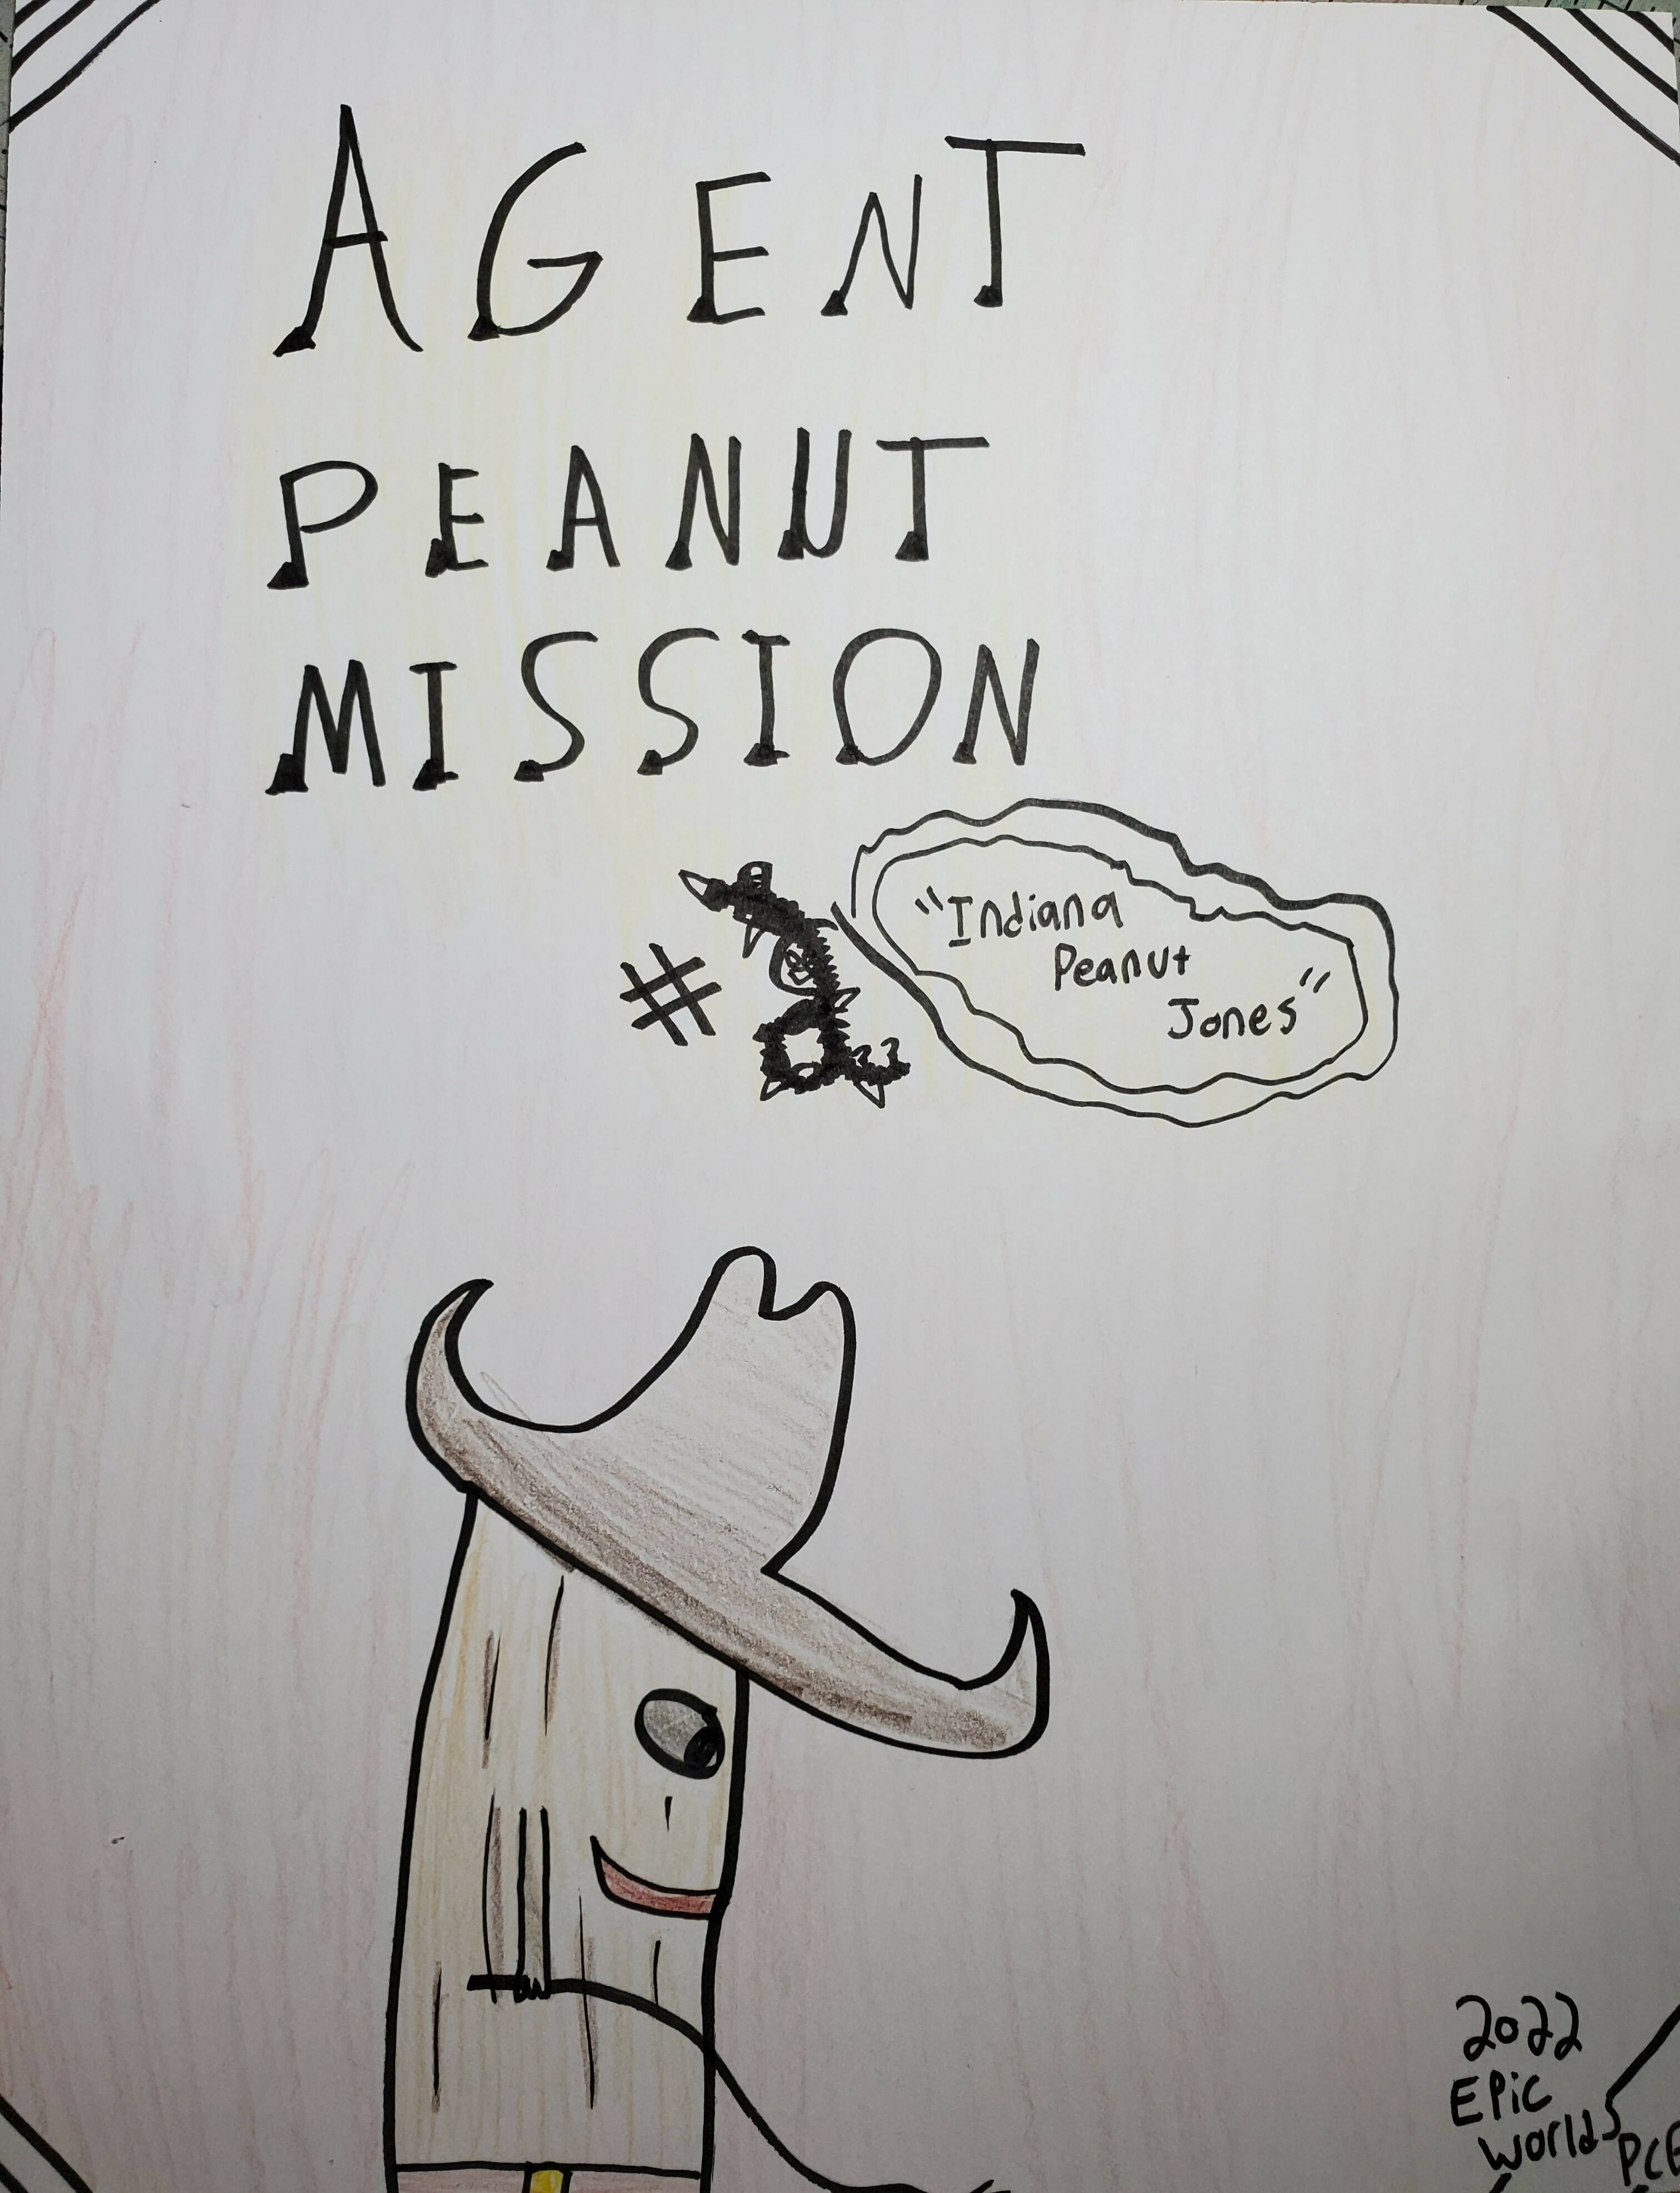 AGENT
PEANUT
MISSION
#2
"Indiana
Peanut
Jones"
2022
EPic
Worlds